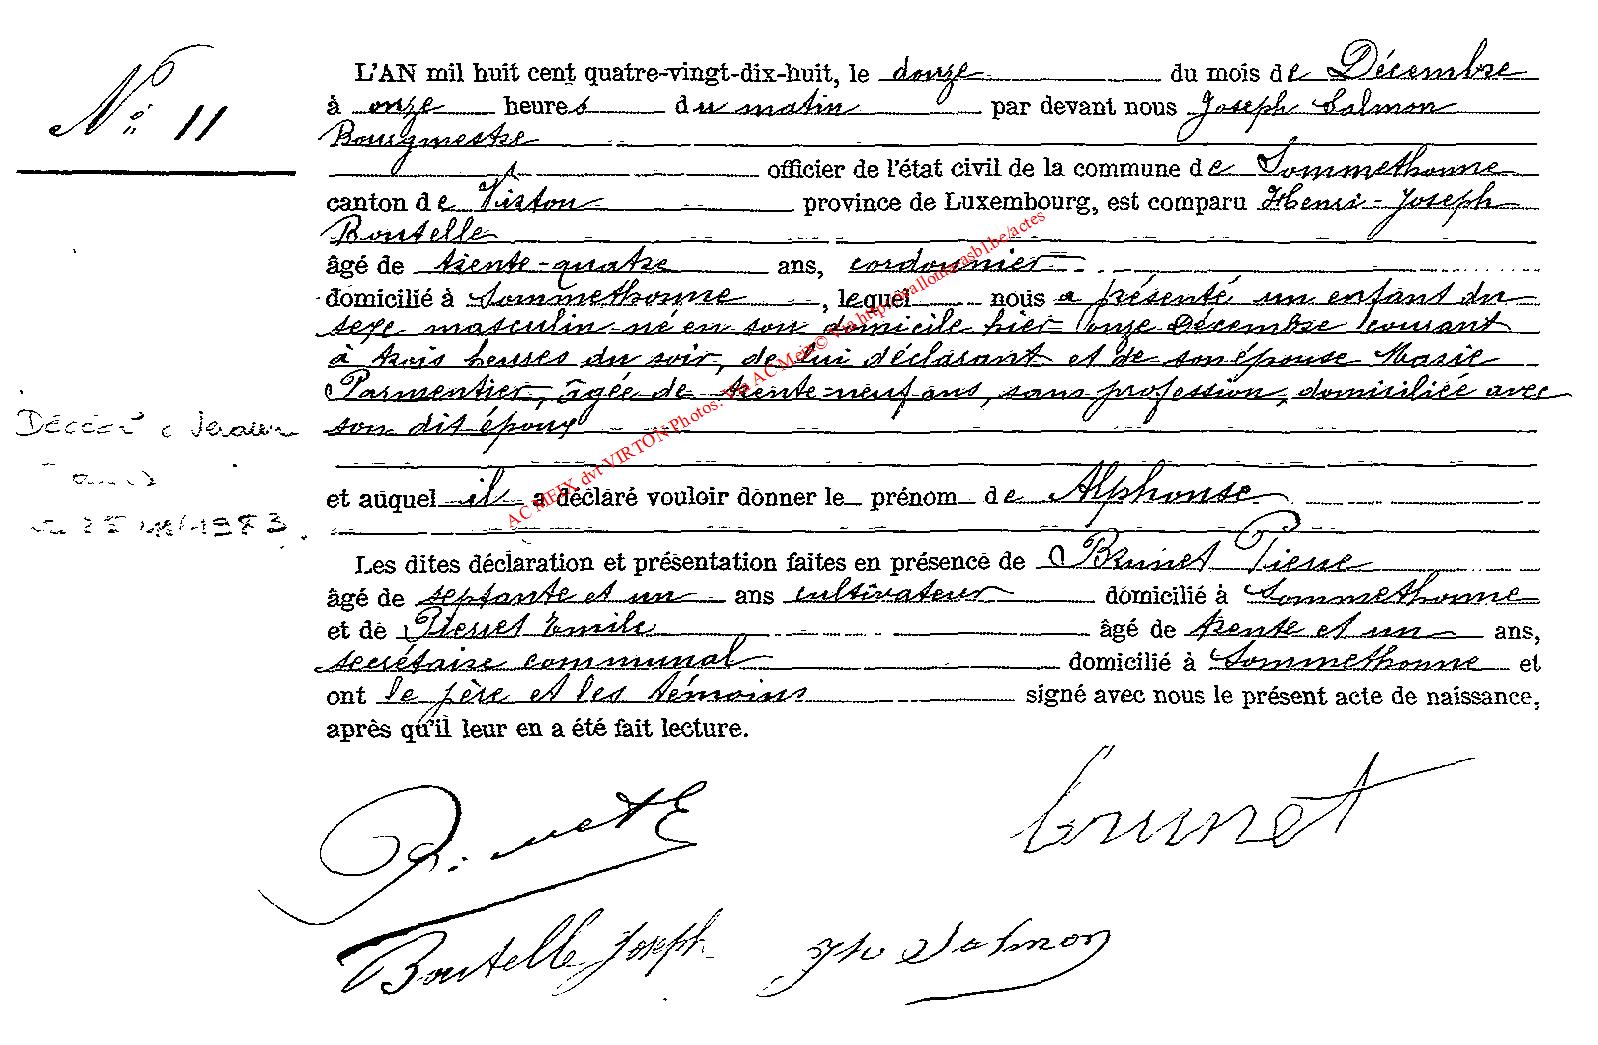 N° 11
L'AN mil huit cent quatre-vingt-dix-huit, le douze du mois de Décembre
à onze heures du matin par devant nous Joseph Salmon
Bourgmestre
officier de l'état civil de la commune de Sommethonne
canton de Virton province de Luxembourg, est comparu Henri-Joseph
Boutelle
âgé de trente-quatre ans, cordonnier
domicilié à Sommethonne, lequel nous a présenté un enfant du
sexe masculin né en son domicile hier onze Décembre courant
à trois heures du soir, de lui déclarant et de son épouse Marie
Parmentier, âgée de trente-neuf ans, sans profession, domiciliée avec
son dit époux
et auquel il a déclaré vouloir donner le prénom de Alphonse
Les dites déclaration et présentation faites en présence de Brunet Pierre
âgé de septante et un ans cultivateur domicilié à Sommethonne
et de Pierret Emile âgé de trente et un ans,
secrétaire communal domicilié à Sommethonne et
ont le père et les témoins signé avec nous le présent acte de naissance,
après qu'il leur en a été fait lecture.
Décédé
1983
AC MEIX dvt VIRTON Photos: Via AC Meix © Via http://wallonia.asbl.be/actes
Brunet
Boutelle Joseph Jh Salmon